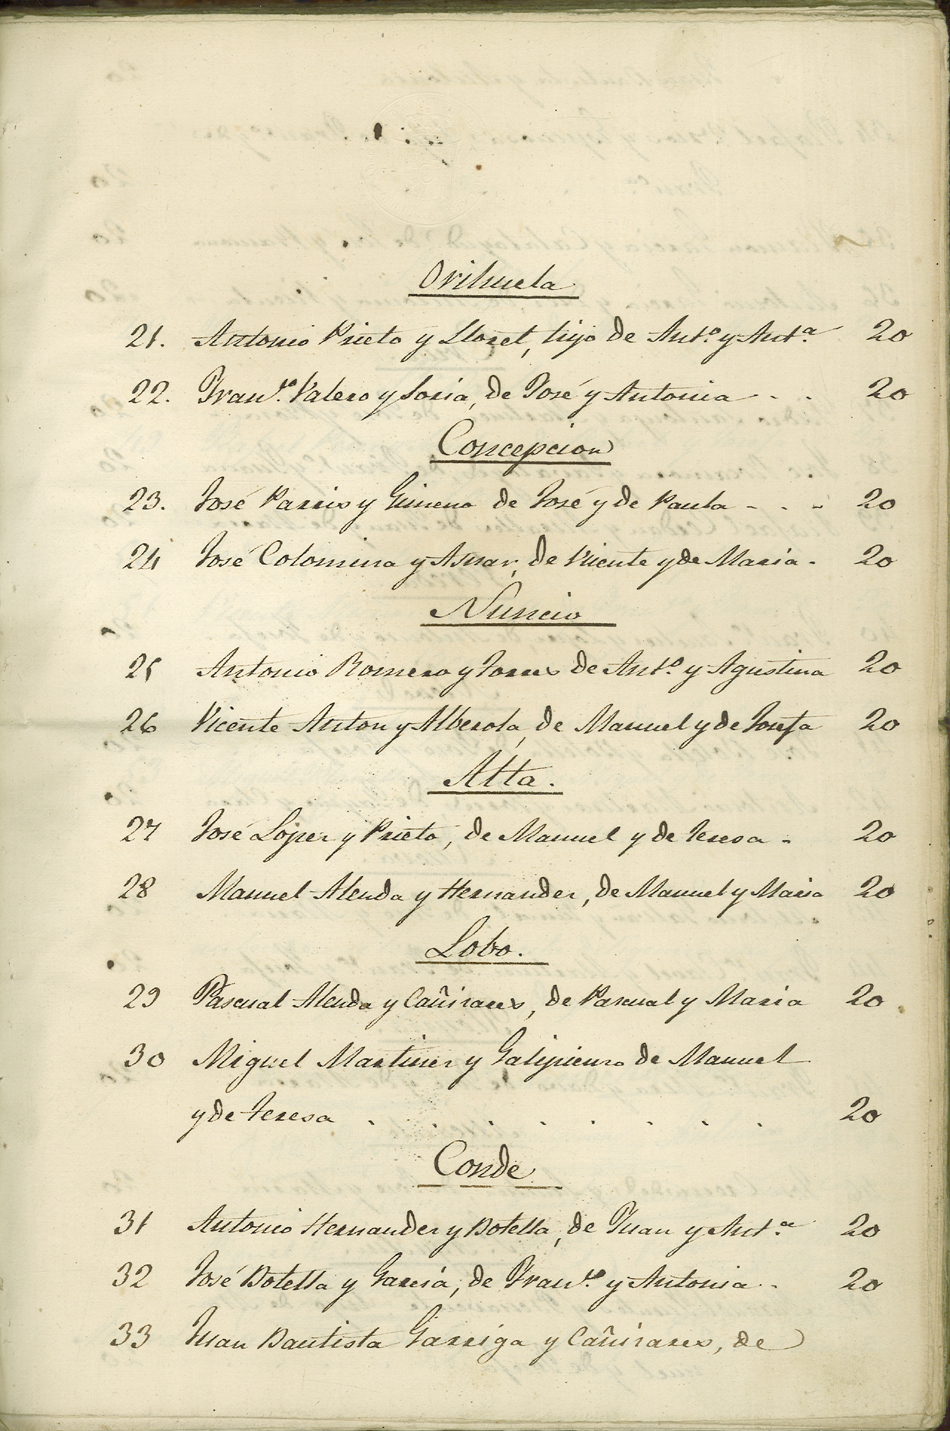 Orihuela
21. Antonio Prieto y Lloret, hijo de Antº. y Antª. 20
22. Franco. Valero y Soria, de José y Antonia - . . 20
Concepcion
23. José Parris y Gimeno de José y de Paula - . . 20
24 José Colomina y Asnar, de Vicente y de Maria . 20
Nuncio
25 Antonio Romero y Torres de Antº. y Agustina 20
26 Vicente Anton y Alberola, de Manuel y de Josefa 20
Alta.
27 José Lopez y Prieto, de Manuel y de Teresa . 20
28 Manuel Alenda y Hernandez, de Manuel y Maria 20
Lobo.
29 Pascual Alenda y Cañizares, de Pascual y Maria 20
30 Miguel Martinez y Galipienzo de Manuel
y de Teresa . . . . . . . . 20
Conde
31 Antonio Hernandez y Botella, de Juan y Antª. 20
32 José Botella y Garcia, de Franco. y Antonia . 20
33 Juan Bautista Garriga y Cañizares, de